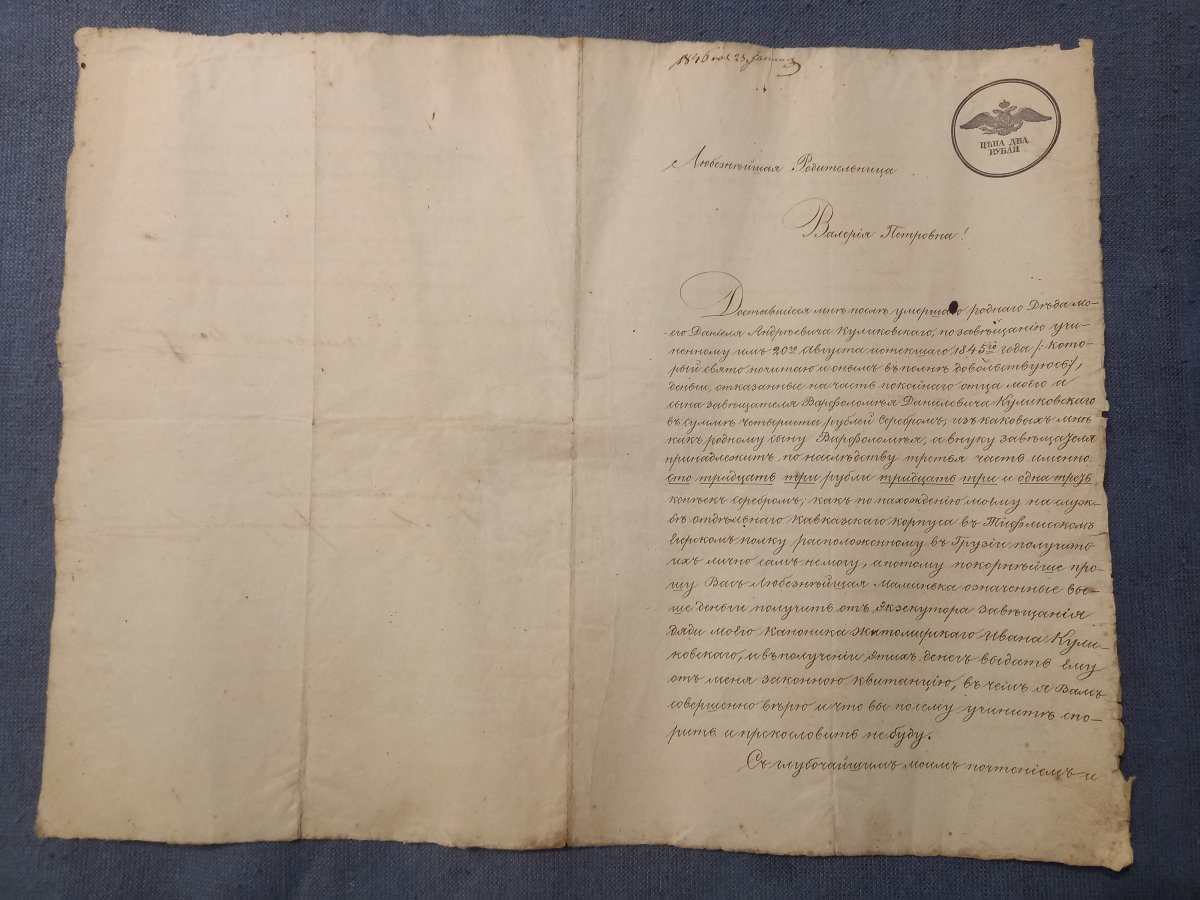 1846 года 23 Января
ЦѢНА ДВА
РУБЛИ
Любезнѣйшая Родительница
Валерія Петровна!
Доставшіеся мнѣ послѣ умершаго роднаго Дѣда мо-
его Даніеля Андрѣевича Куликовскаго, по завѣщанію учи-
ненному имъ 20го Августа истекшаго 1845го года /: кото-
рый свято почитаю и онымъ въ полнѣ довольствуюсь:/,
деньги, отказанные на часть покойнаго отца моего а
сына завѣщателя Варфоломѣя Данилевича Куликовскаго
въ суммѣ четыриста рублей серебромъ, изъ каковыхъ мнѣ
какъ родному сыну Варфоломѣя, а внуку завѣщателя
принадлежитъ по наслѣдству третья часть именно:
сто тридцать три рубля тридцать три и одна треть
копѣекъ серебромъ, какъ по нахожденію моему на служ-
бѣ отдѣльнаго Кавказкаго корпуса въ Тифлисскомъ
Егеркомъ полку расположенному въ Грузіи получить
ихъ лично самъ немогу, а потому покорнѣйше про-
шу Васъ Любезнѣйшая Маминька означенные выс-
ше деньги получить отъ Экзекутора завѣщанія
дяди моего Каноника Житомирскаго Ивана Кули-
ковскаго, и въ полученіи этихъ денегъ выдать ему
отъ меня законною квитанцію, въ чемъ я Вамъ
совершенно вѣрю и что вы посему учините спо-
рить и прекословить не буду.
Съ глубочайшимъ моимъ почтеніемъ и